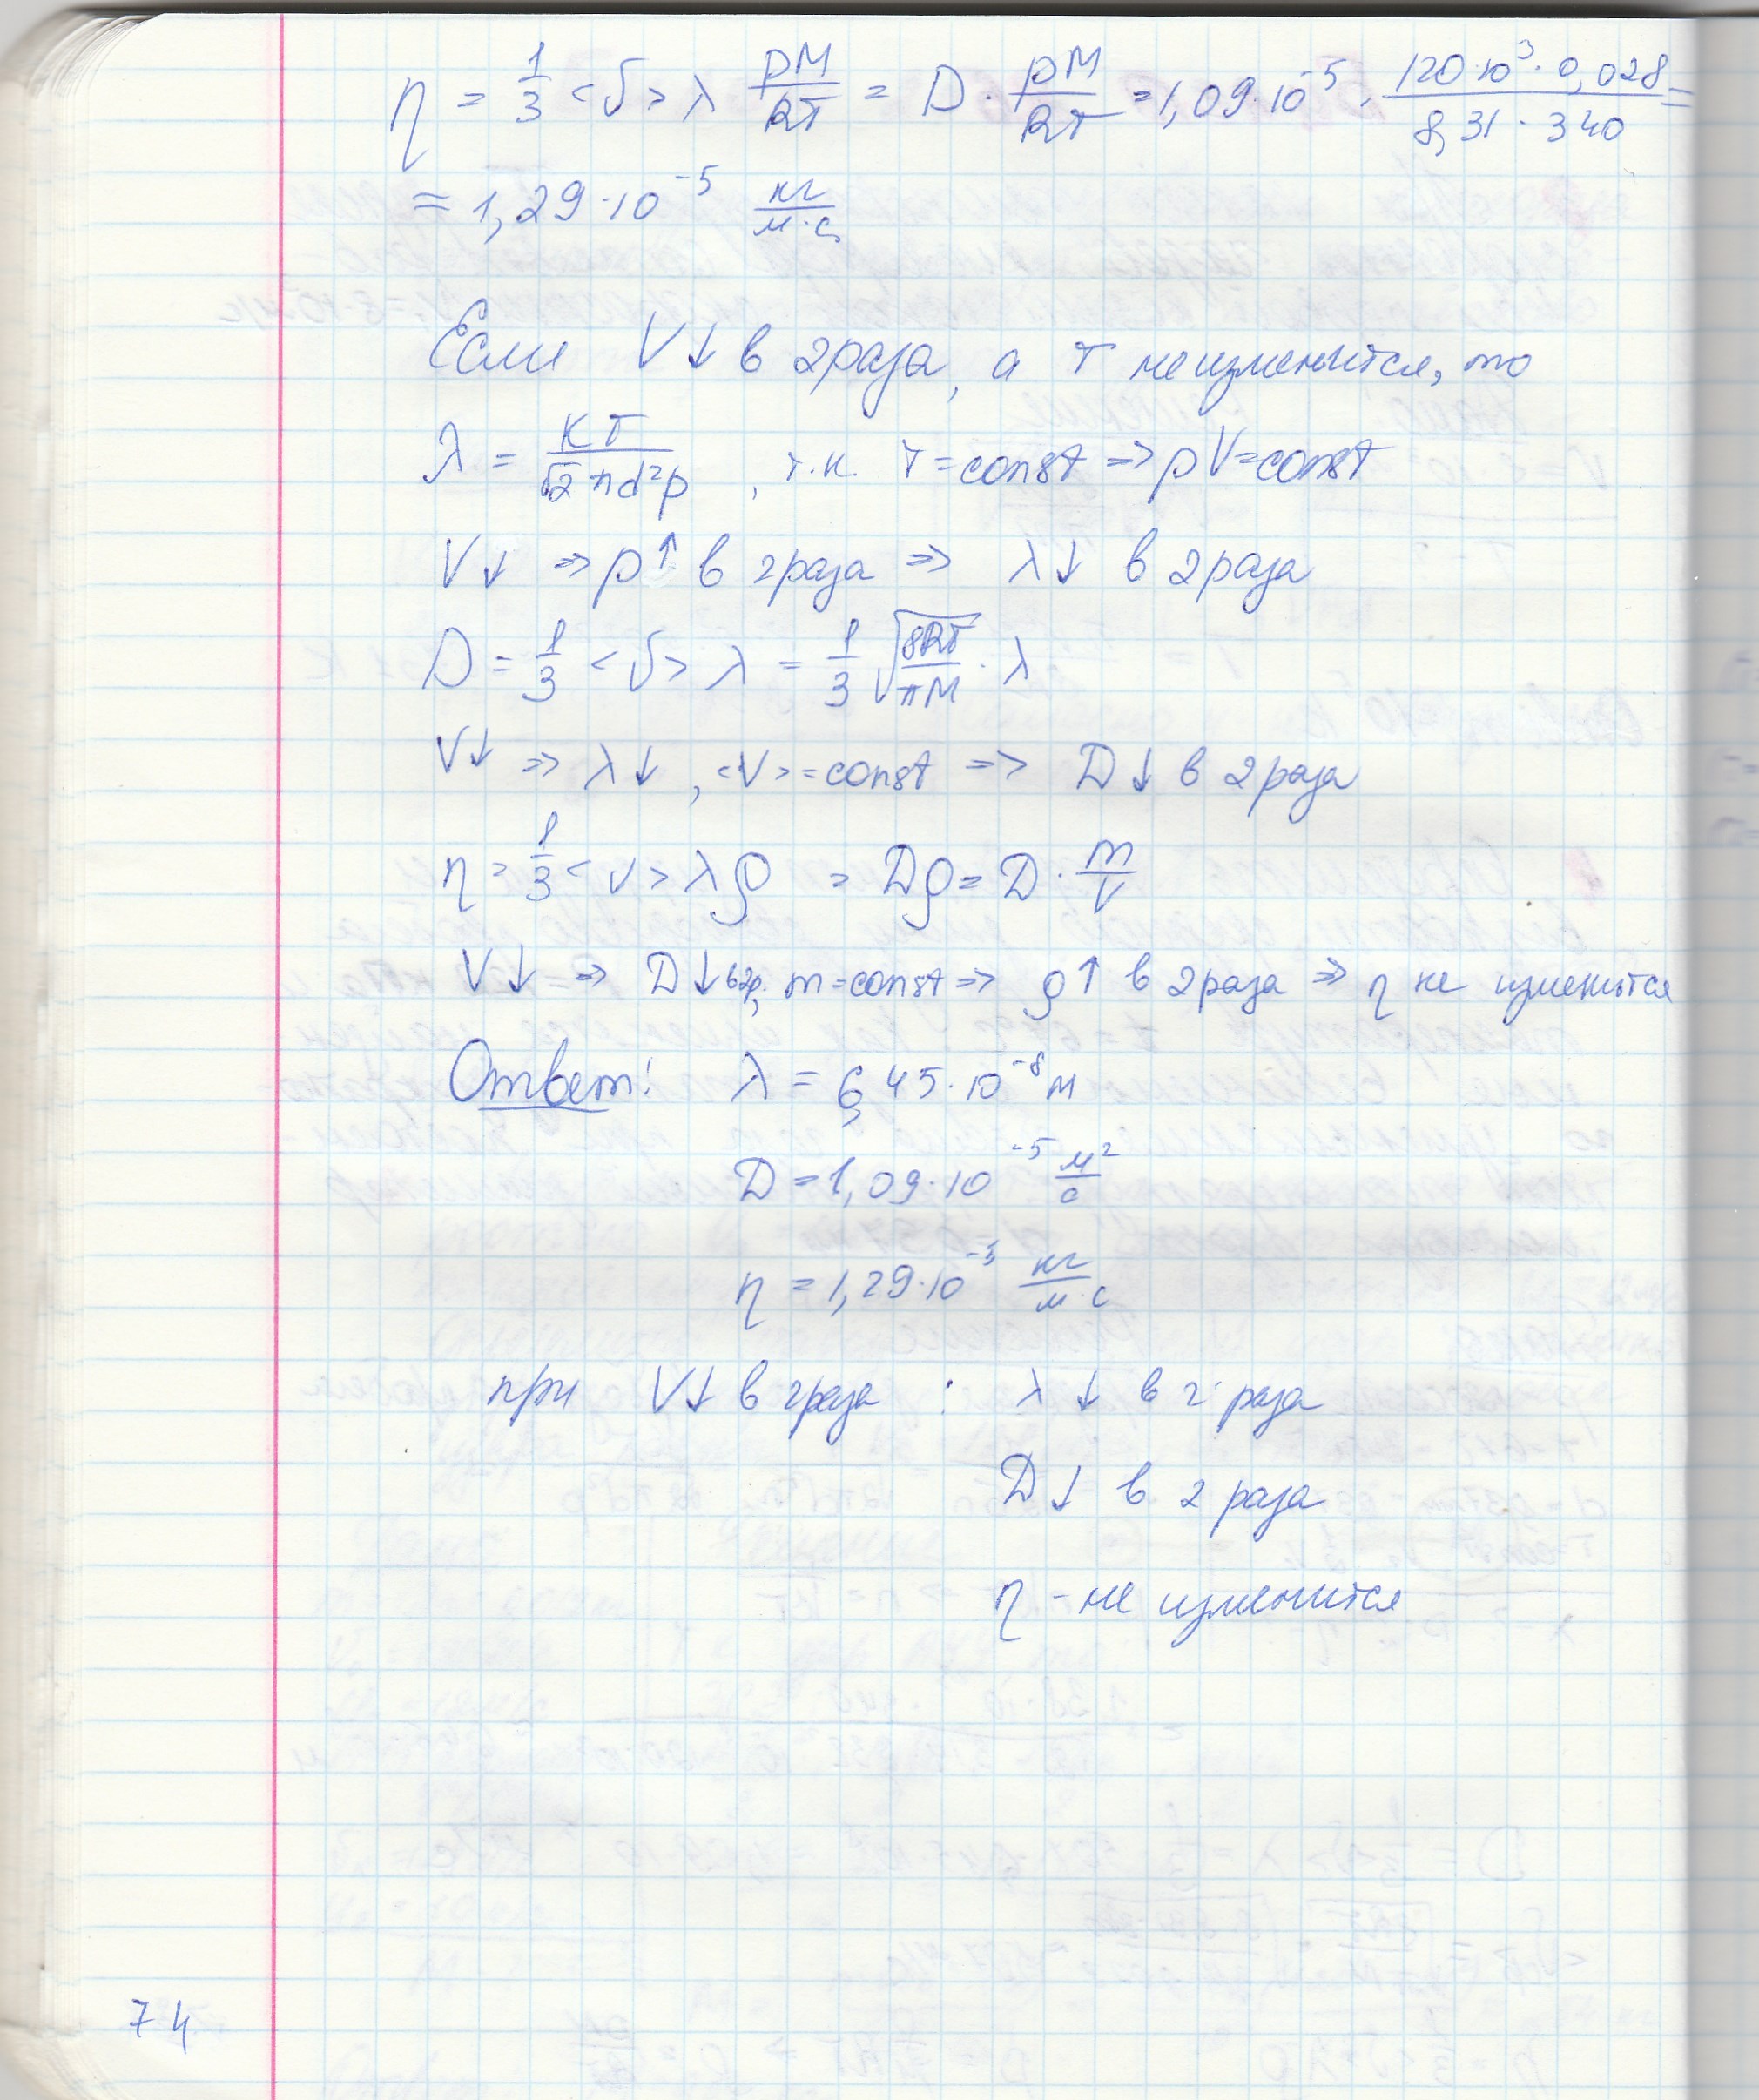 η = 1/3 <v> λ pM/RT = D · pM/RT = 1,09·10⁻⁵ · 120·10³·0,028/8,31·340 =
= 1,29·10⁻⁵ кг/м·с
Если V↓ в 2 раза, а T не изменится, то
λ = kT/√2 πd²p , т.к. T=const ⇒ pV=const
V↓ ⇒ p↑ в 2 раза ⇒ λ↓ в 2 раза
D = 1/3 <v> λ = 1/3 √(8RT/πM) · λ
V↓ ⇒ λ↓, <v>=const ⇒ D↓ в 2 раза
η = 1/3 <v> λρ = Dρ = D · m/V
V↓ ⇒ D↓ в 2р, m=const ⇒ ρ↑ в 2 раза ⇒ η не изменится
Ответ: λ = 6,45·10⁻⁸ м
D = 1,09·10⁻⁵ м²/с
η = 1,29·10⁻⁵ кг/м·с
при V↓ в 2 раза : λ↓ в 2 раза
D↓ в 2 раза
η - не изменится
74